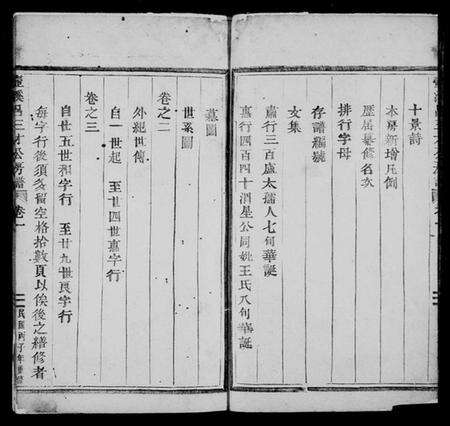 十景詩
本房新增凡例
歷屆纂修名次
排行字母
存譜編號
文集
惠行三百盧太孺人七旬華誕
惠行四百四十渭星公同姚王氏八旬華誕
墓圖
世系圖
卷之二
外紀世傳
自一世起 至廿四世惠字行
卷之三
自廿五世和字行 至廿九世良字行
每字行後須多留空格拾數頁以俟後之續修者
卷一
民國丙子年